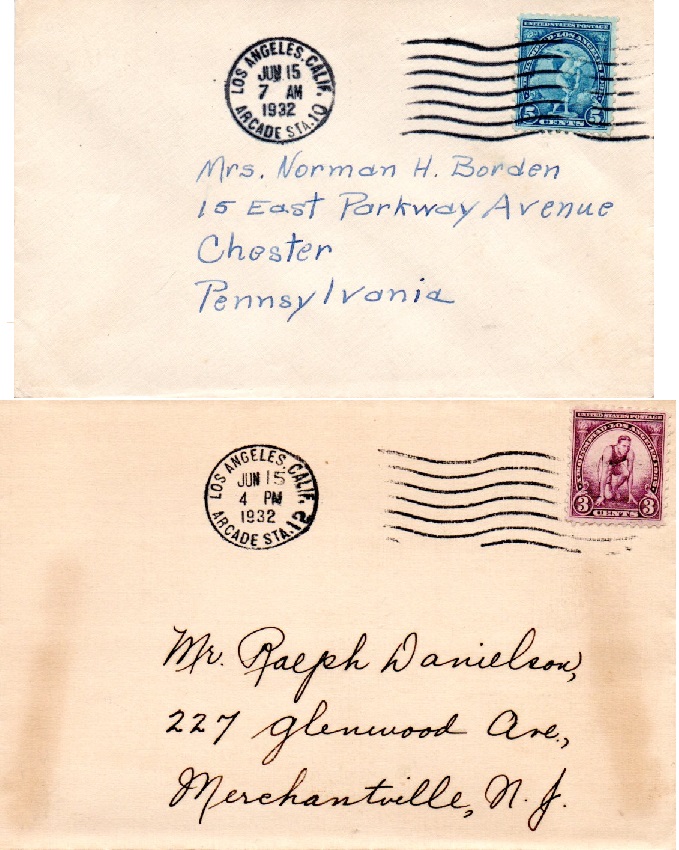 LOS ANGELES, CALIF.
JUN 15
7 AM
1932
ARCADE STA. 10
UNITED STATES POSTAGE
5 CENTS 5
Mrs. Norman H. Borden
15 East Parkway Avenue
Chester
Pennsylvania
LOS ANGELES, CALIF.
JUN 15
4 PM
1932
ARCADE STA. 12
UNITED STATES POSTAGE
3 CENTS 3
Mr. Ralph Danielson,
227 Glenwood Ave.,
Merchantville, N. J.